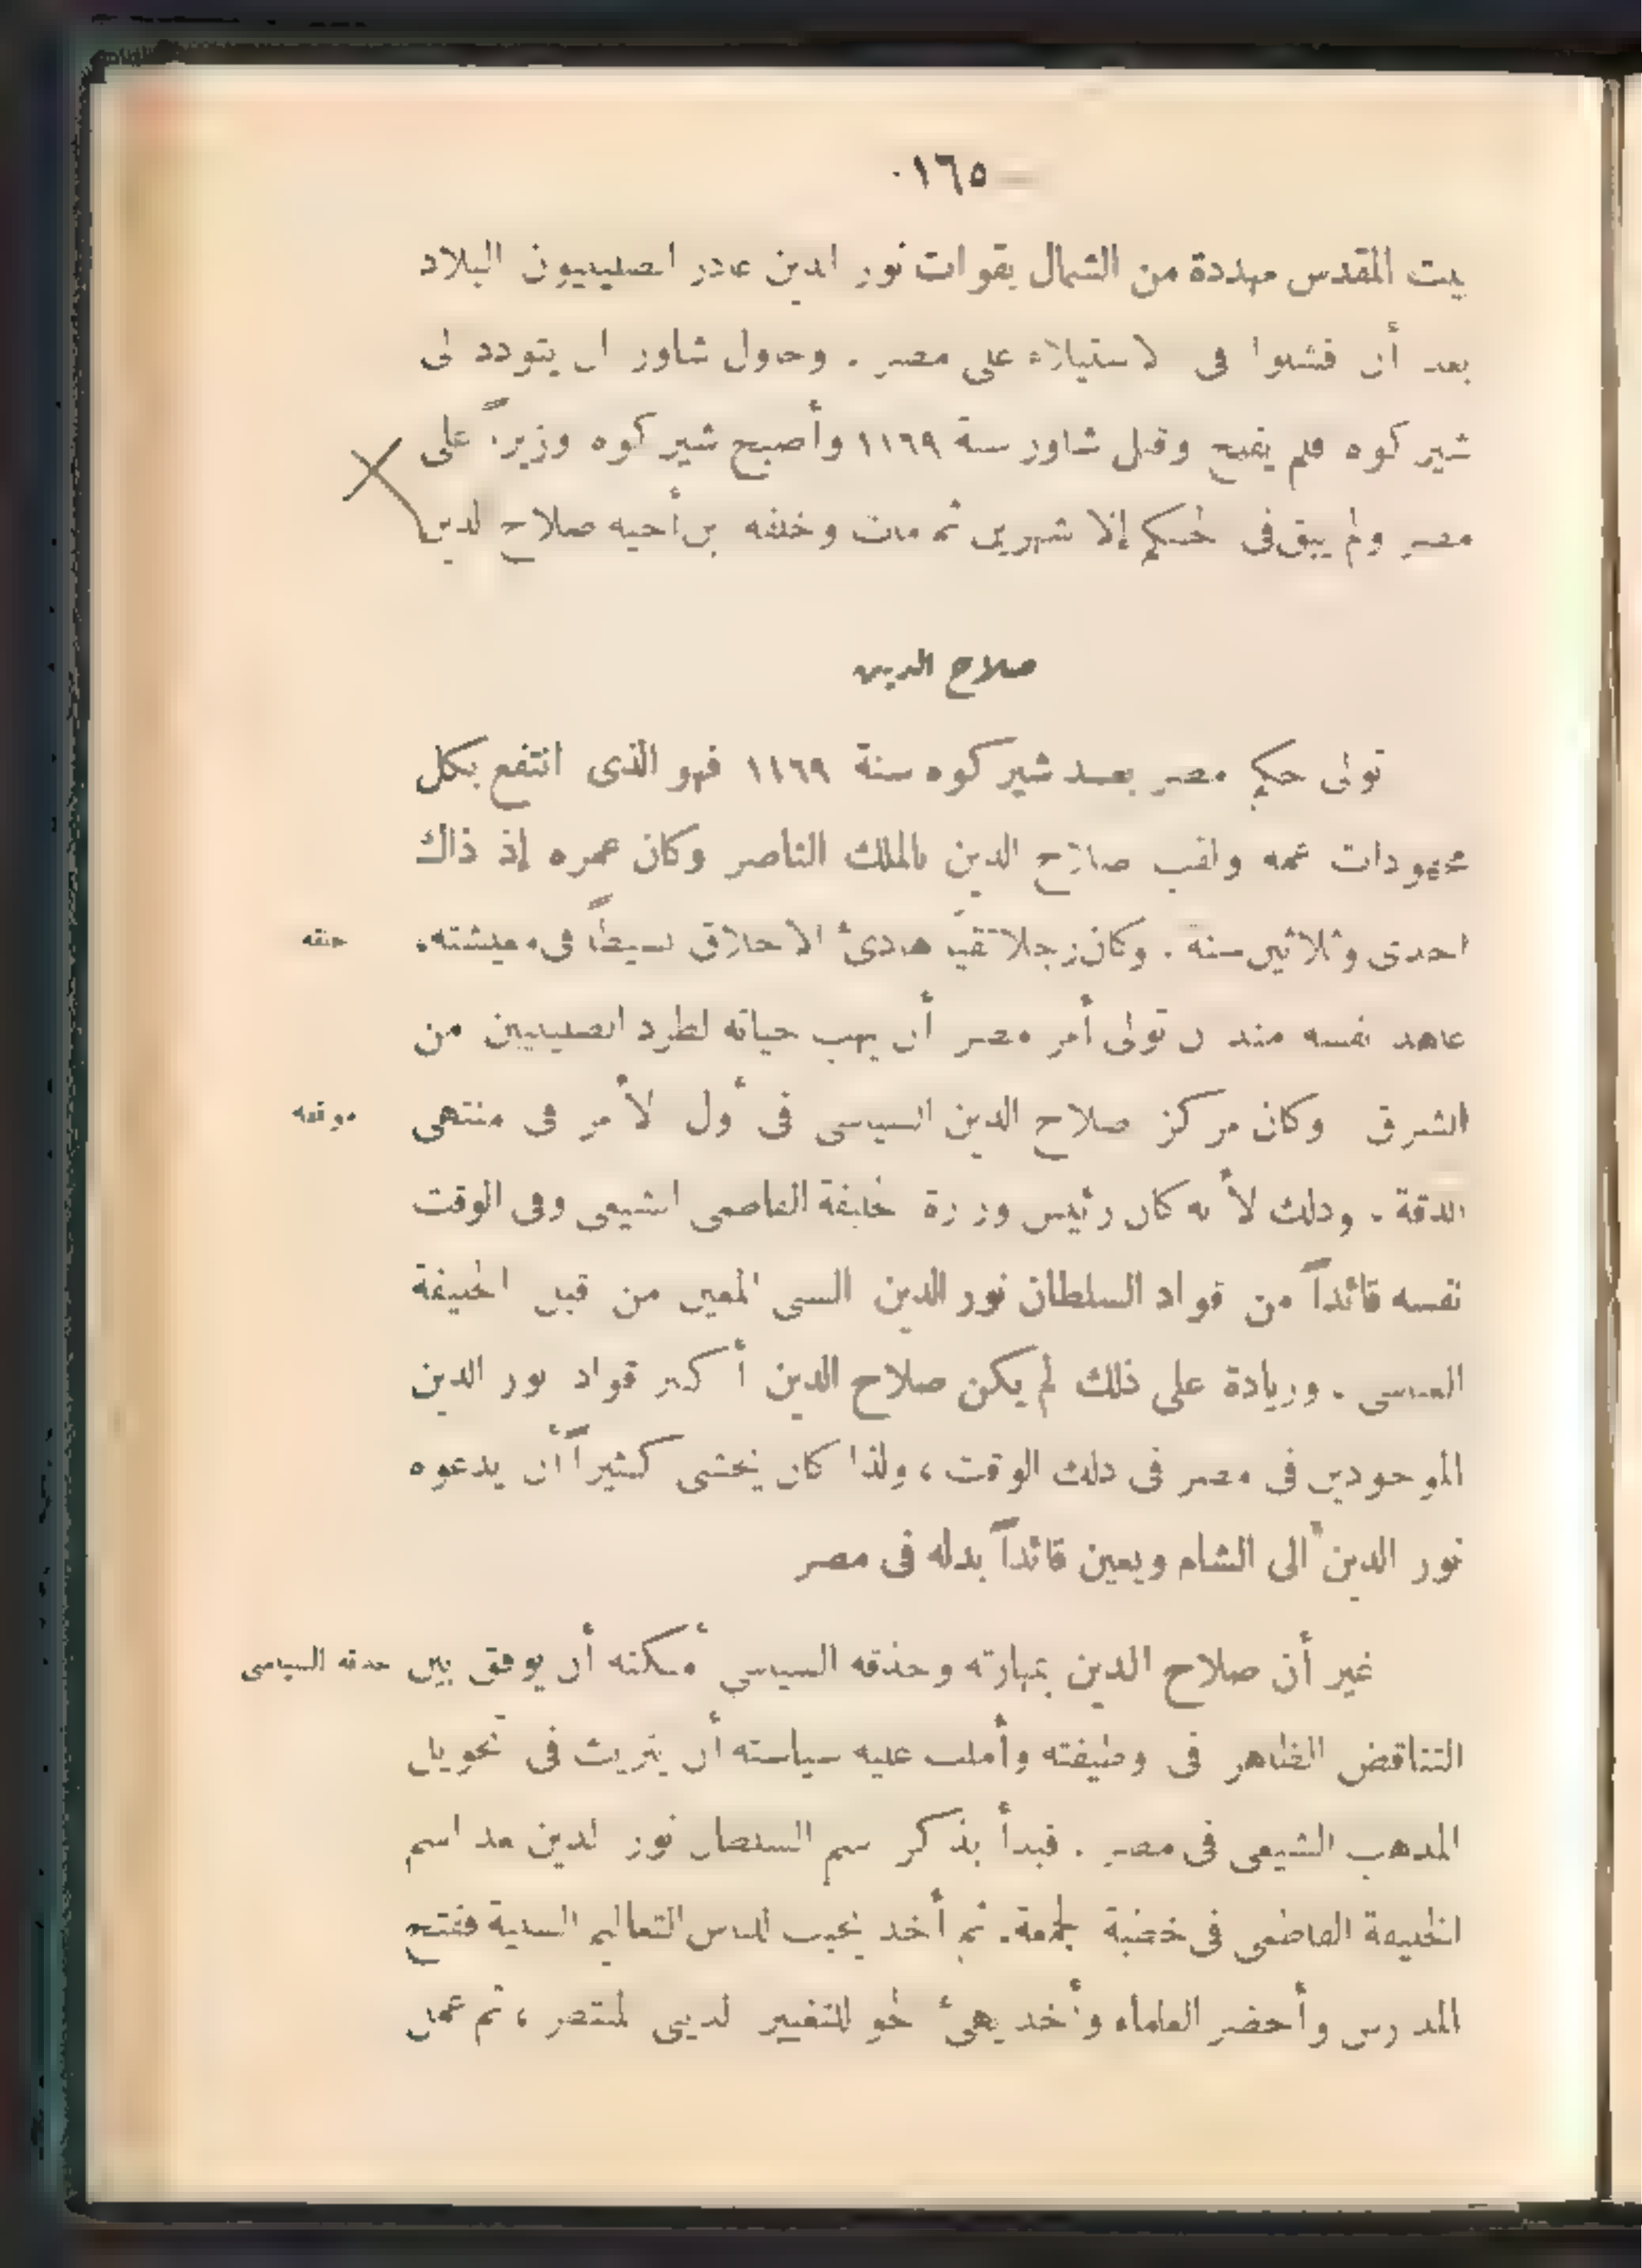 — ١٦٥
بيت المقدس مهددة من الشمال بقوات نور الدين غادر الصليبيون البلاد
بعد أن فشلوا فى الاستيلاء على مصر . وحاول شاور ان يتودد الى
شيركوه فلم يفلح وقتل شاور سنة ١١٦٩ وأصبح شيركوه وزيراً على
مصر ولم يبق فى الحكم إلا شهرين ثم مات وخلفه ابن أخيه صلاح الدين
صلاح الدين
تولى حكم مصر بعد شيركوه سنة ١١٦٩ فهو الذى انتفع بكل
مجهودات عمه ولقب صلاح الدين بالملك الناصر وكان عمره إذ ذاك
احدى وثلاثين سنة . وكان رجلا تقياً هادئ الاخلاق بسيطاً فى معيشته .
خلقه
عاهد نفسه منذ ان تولى أمر مصر أن يهب حياته لطرد الصليبيين من
الشرق وكان مركز صلاح الدين السياسى فى أول الأمر فى منتهى
موقفه
الدقة . وذلك لأنه كان رئيس وزارة الخليفة الفاطمى الشيعى وفى الوقت
نفسه قائداً من قواد السلطان نور الدين السنى المعين من قبل الخليفة
العباسى . وزيادة على ذلك لم يكن صلاح الدين أكبر قواد نور الدين
الموجودين فى مصر فى ذلك الوقت ، ولذا كان يخشى كثيراً أن يدعوه
نور الدين الى الشام ويعين قائداً بدله فى مصر
غير أن صلاح الدين بمهارته وحذقه السياسى أمكنه أن يوفق بين
حذقه السياسى
التناقض الظاهر فى وظيفته وأملت عليه سياسته أن يتريث فى تحويل
المذهب الشيعى فى مصر . فبدأ بذكر اسم السلطان نور الدين بعد اسم
الخليفة الفاطمى فى خطبة الجمعة . ثم أخذ يحبب للناس التعاليم السنية ففتح
المدارس وأحضر العلماء وأخذ يهىء الجو للتغيير الدينى المنتظر ، ثم عمل